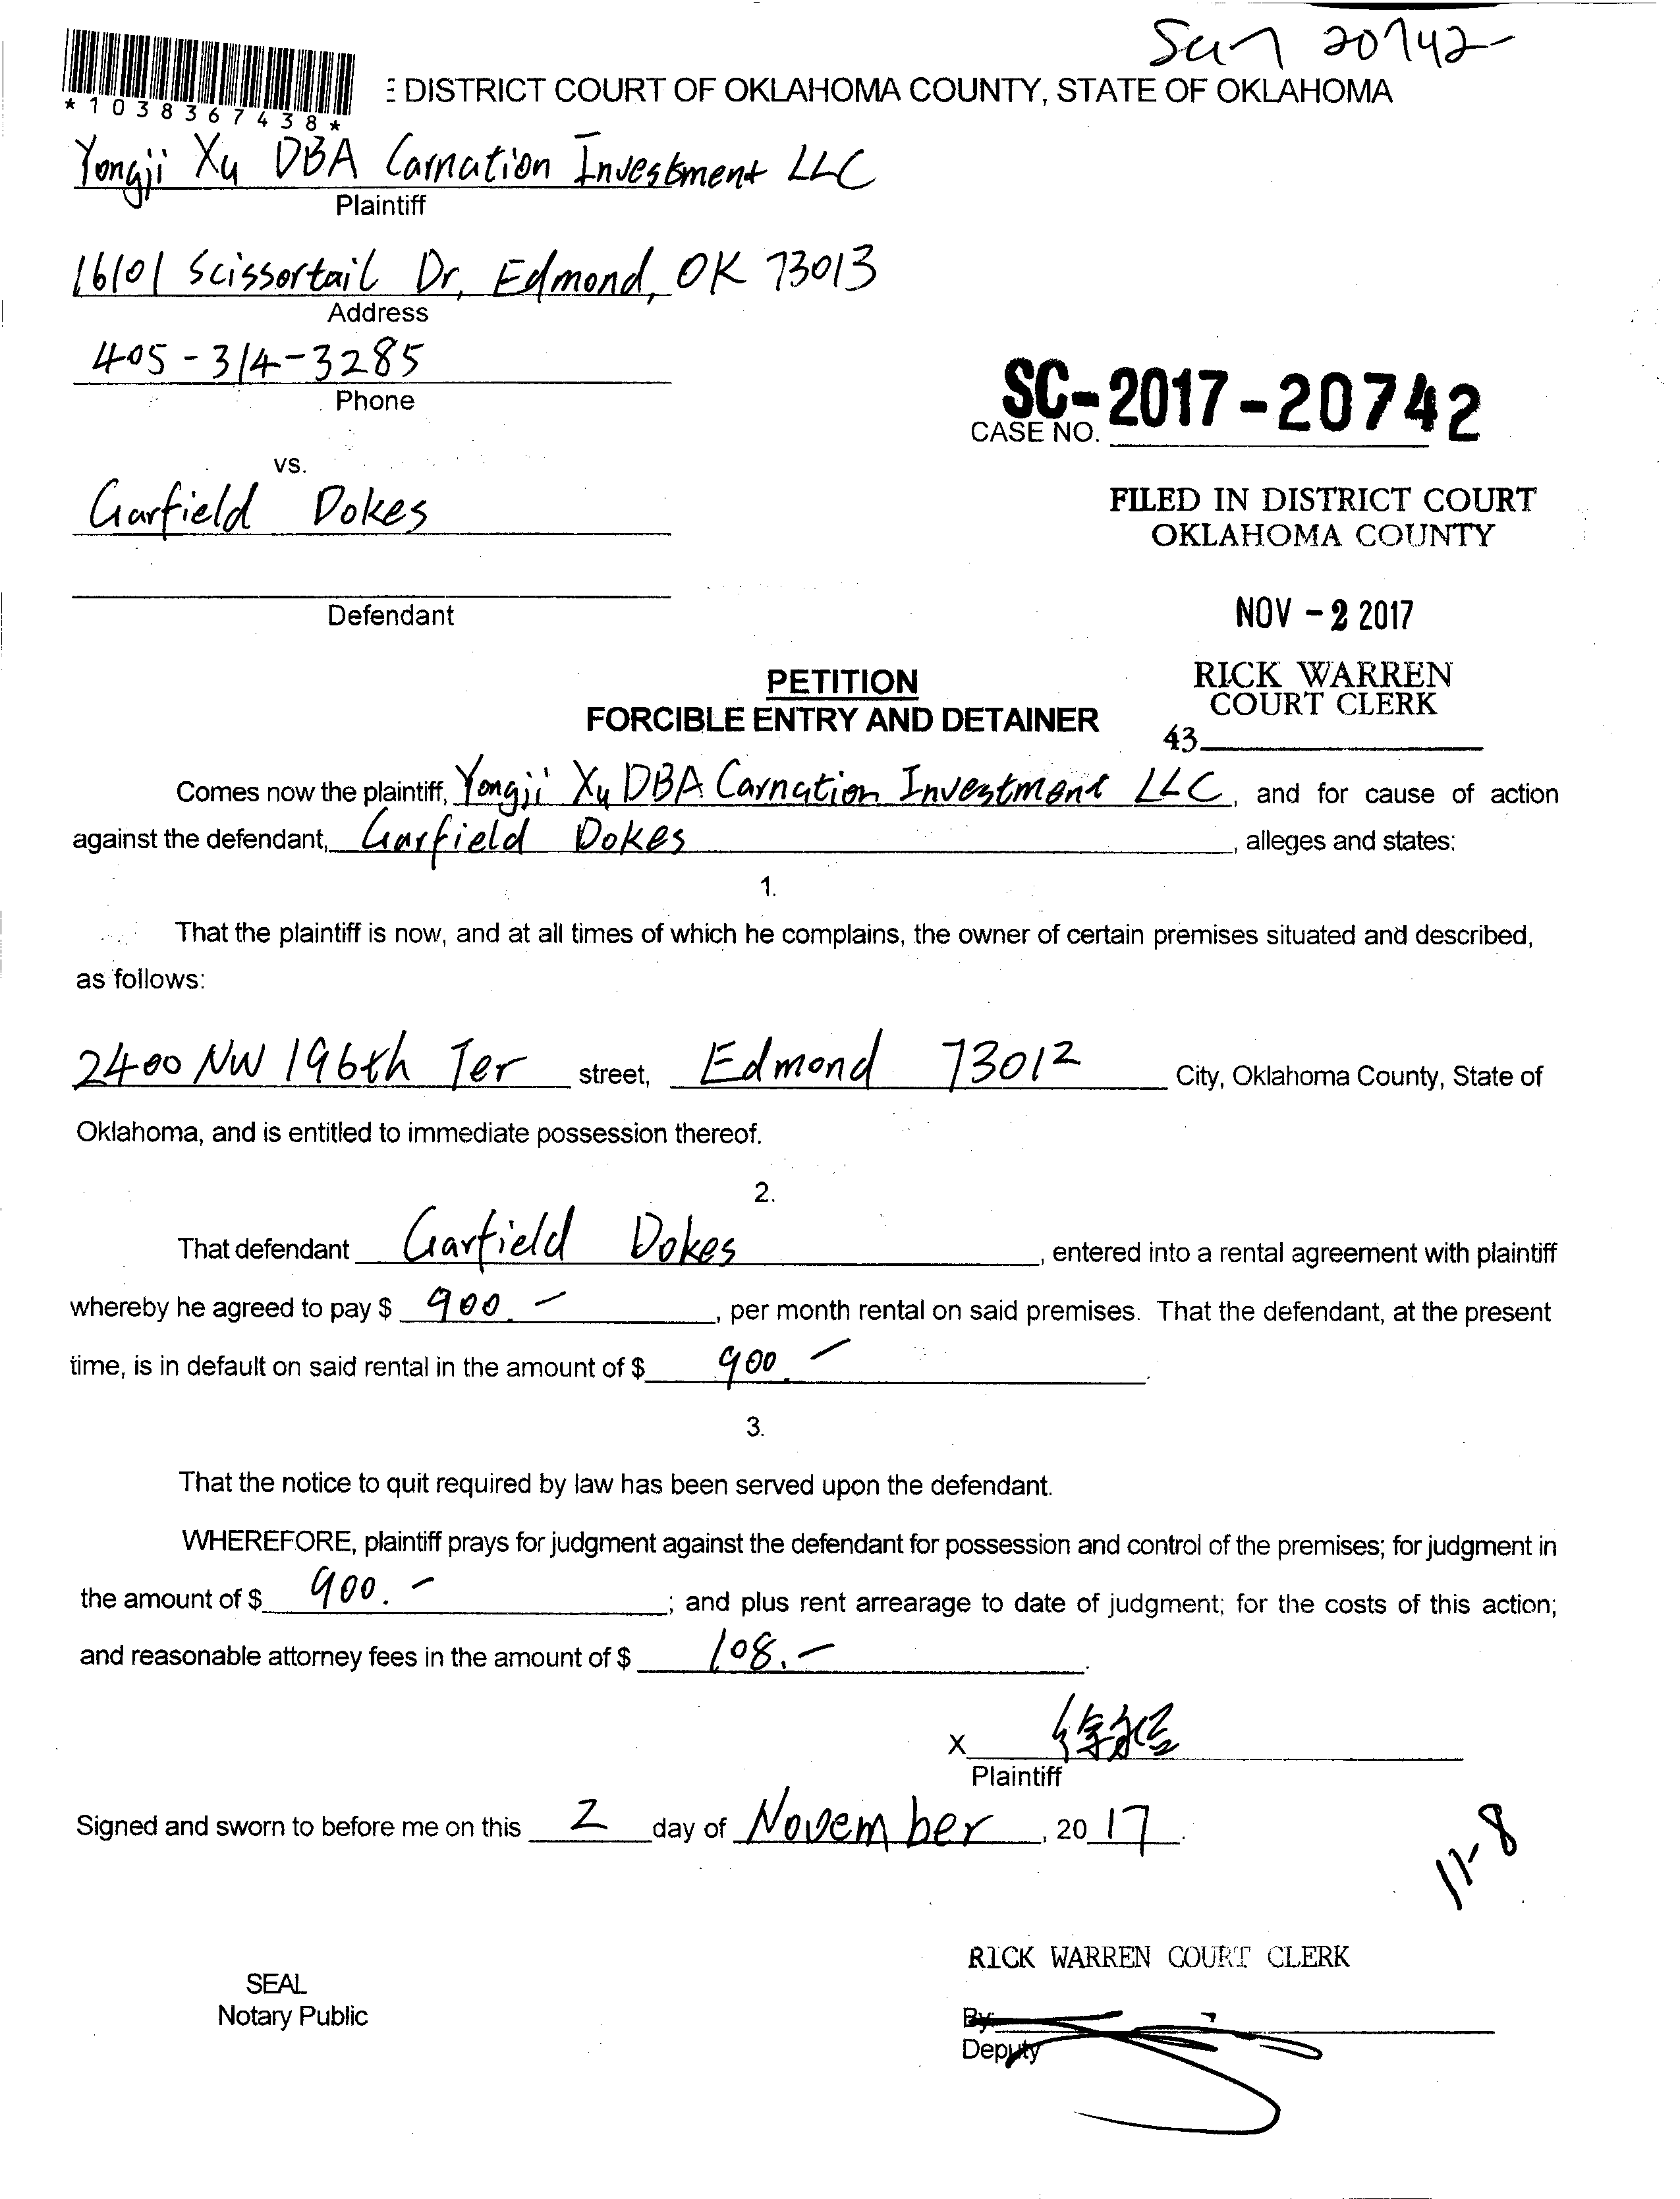 Sc17 20742
*1038367438*
E DISTRICT COURT OF OKLAHOMA COUNTY, STATE OF OKLAHOMA
Yongji Xu DBA Carnation Investment LLC
Plaintiff
16101 Scissortail Dr, Edmond, OK 73013
Address
405-314-3285
Phone
SC-2017-20742
CASE NO.
vs.
Garfield Dokes
FILED IN DISTRICT COURT
OKLAHOMA COUNTY
Defendant
NOV -2 2017
PETITION
FORCIBLE ENTRY AND DETAINER
RICK WARREN
COURT CLERK
43
Comes now the plaintiff, Yongji Xu DBA Carnation Investment LLC, and for cause of action
against the defendant, Garfield Dokes, alleges and states:
1.
That the plaintiff is now, and at all times of which he complains, the owner of certain premises situated and described,
as follows:
2400 NW 196th Ter street, Edmond 73012 City, Oklahoma County, State of
Oklahoma, and is entitled to immediate possession thereof.
2.
That defendant Garfield Dokes, entered into a rental agreement with plaintiff
whereby he agreed to pay $ 900.-, per month rental on said premises. That the defendant, at the present
time, is in default on said rental in the amount of $ 900.-.
3.
That the notice to quit required by law has been served upon the defendant.
WHEREFORE, plaintiff prays for judgment against the defendant for possession and control of the premises; for judgment in
the amount of $ 900.-; and plus rent arrearage to date of judgment; for the costs of this action;
and reasonable attorney fees in the amount of $ 108.-.
X
Plaintiff
Signed and sworn to before me on this 2 day of November, 2017.
11-8
RICK WARREN COURT CLERK
SEAL
Notary Public
By:
Deputy